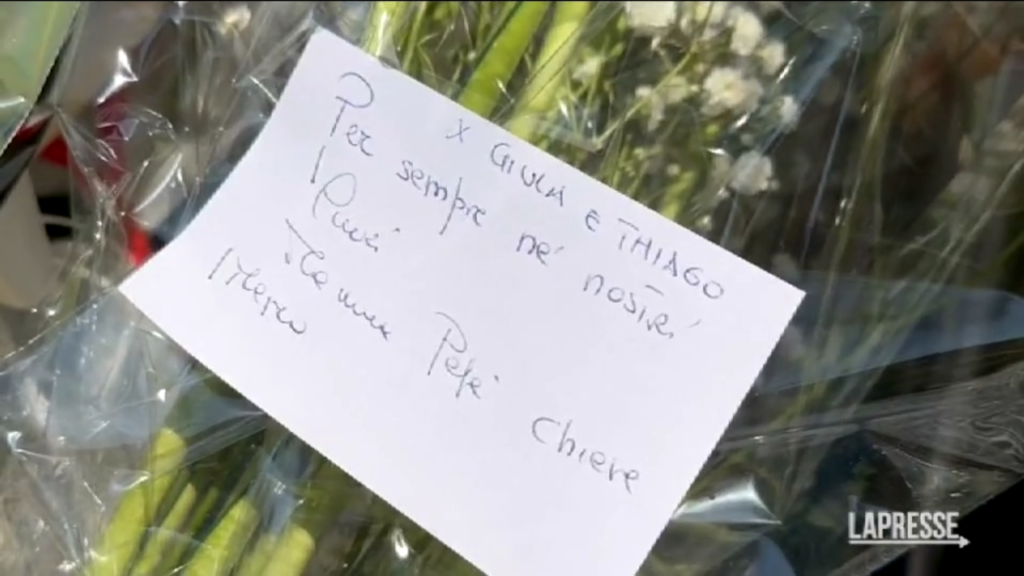 X GIULIA E THIAGO
Per sempre né nostri
Cuori
Pepé Chiere
LAPRESSE